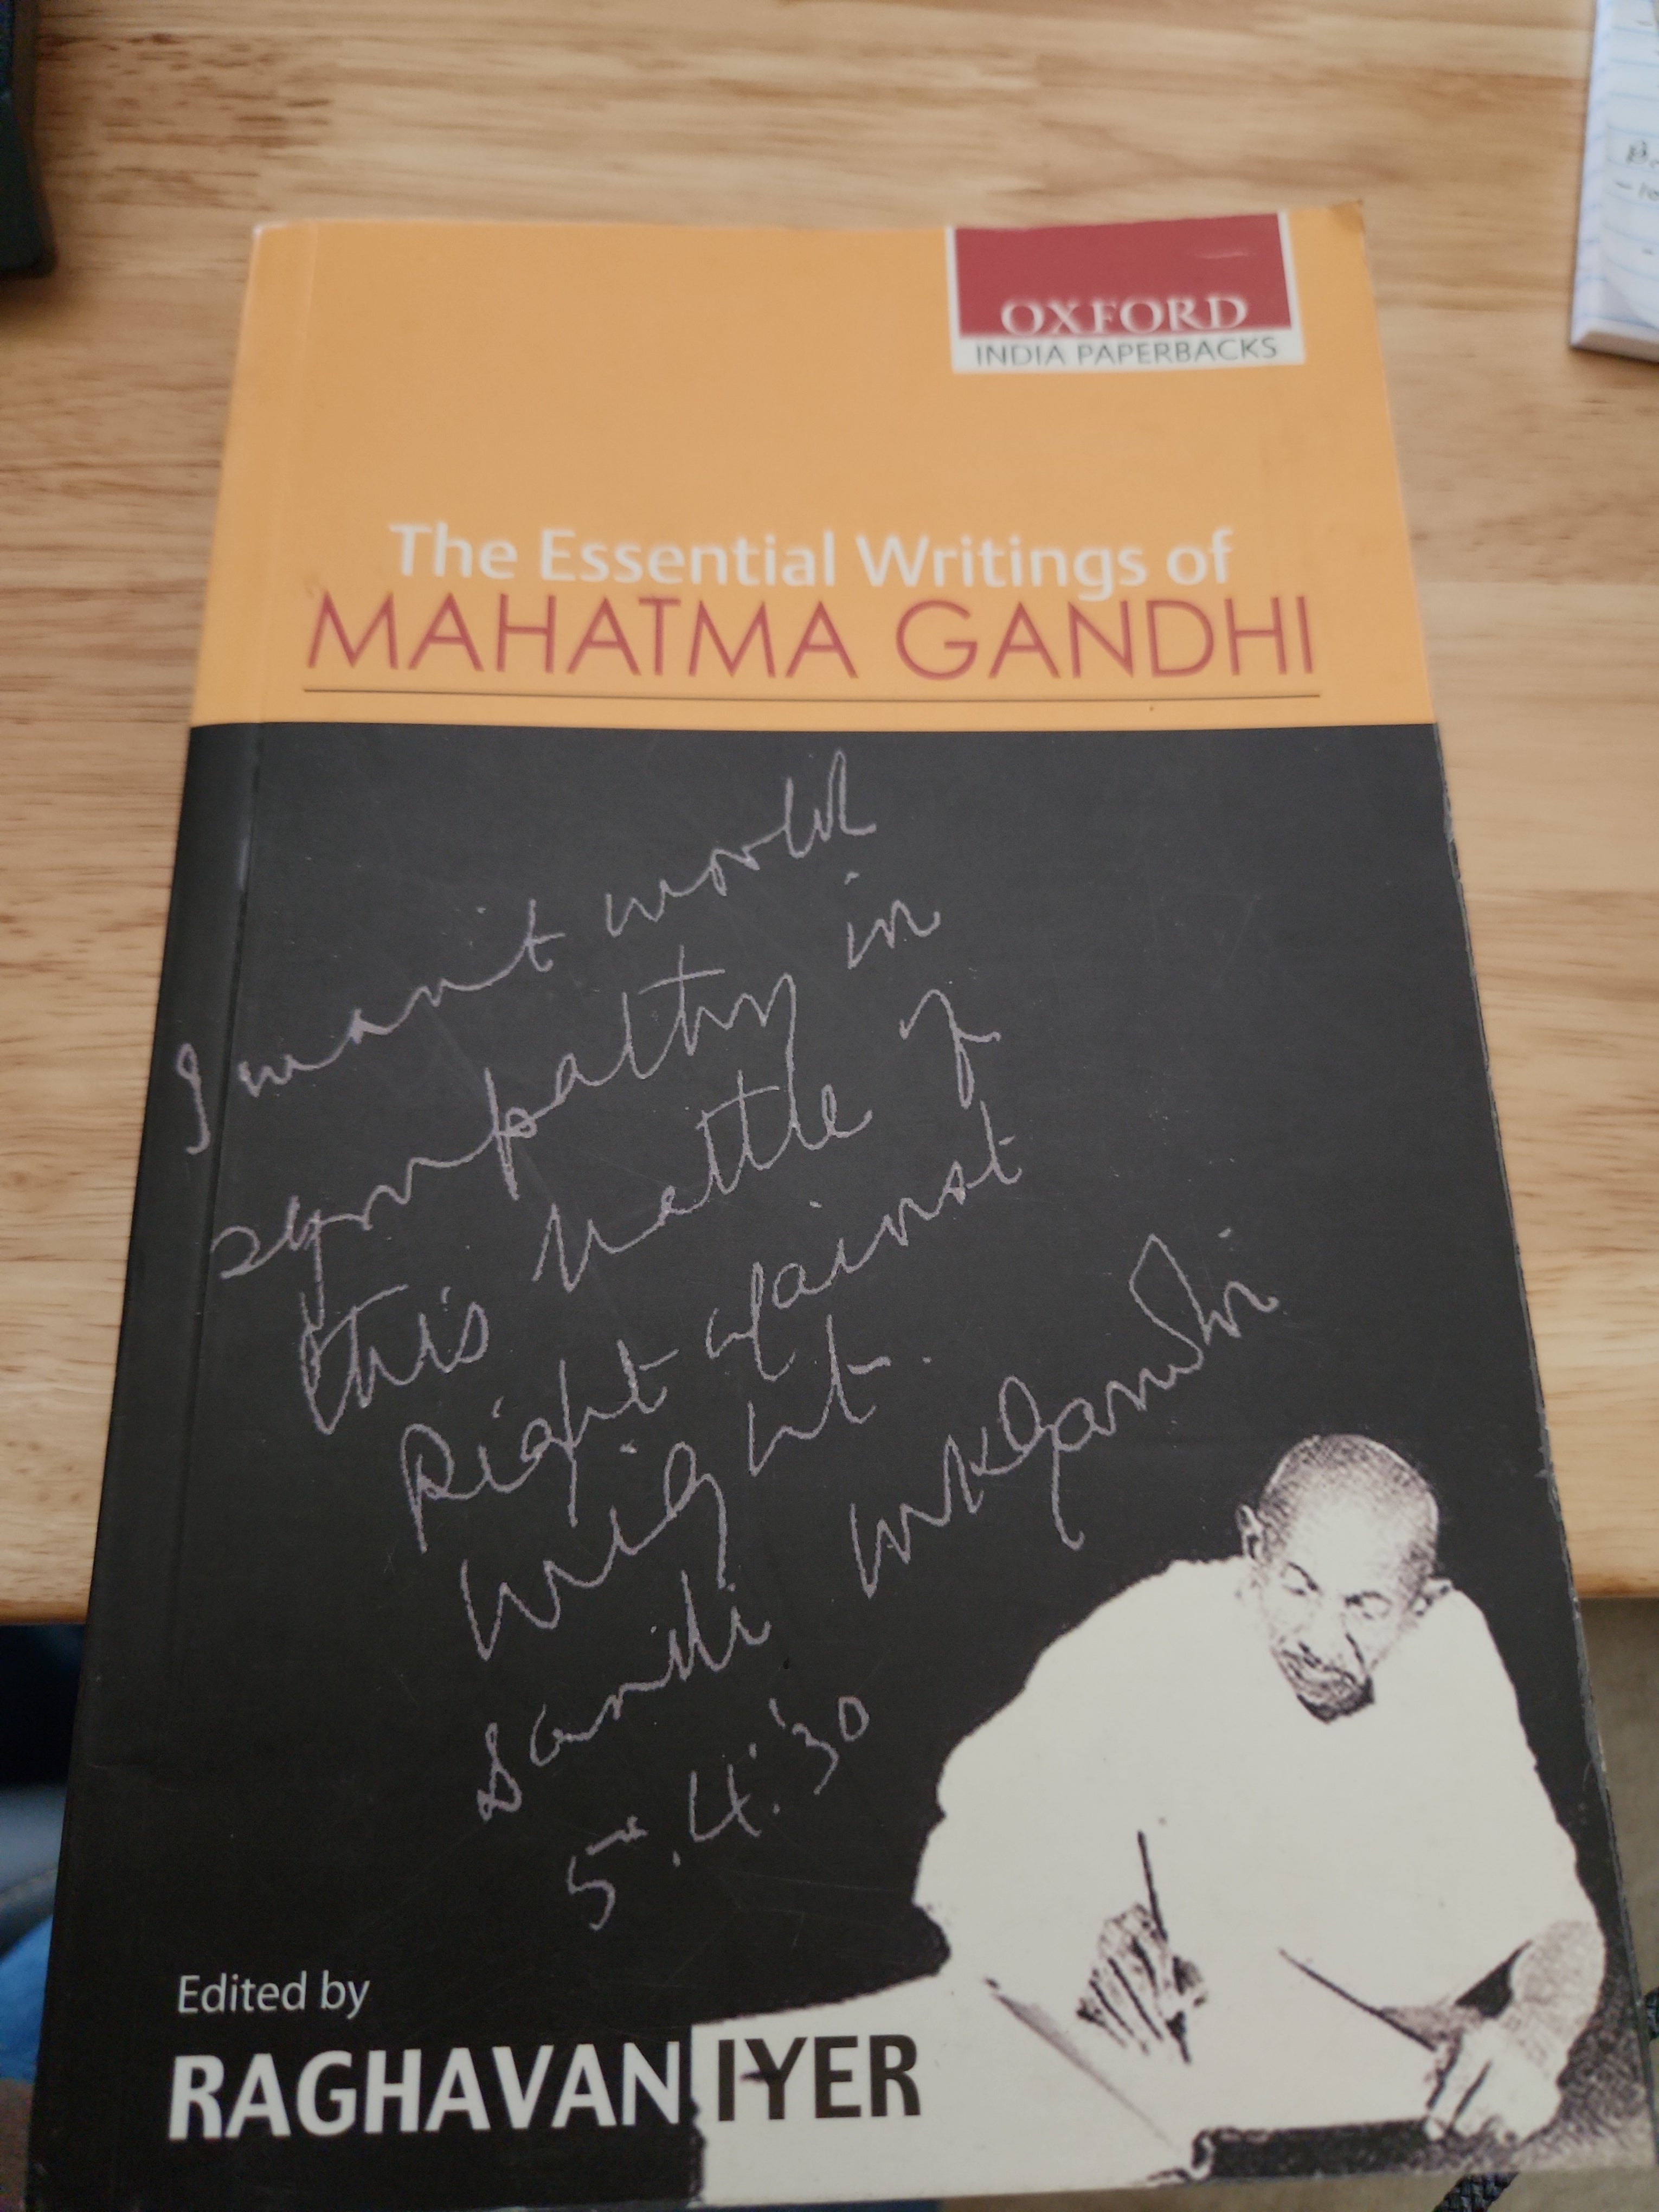 OXFORD
INDIA PAPERBACKS
The Essential Writings of
MAHATMA GANDHI
I want world
sympathy in
this battle of
Right against
might.
Dandi MKGandhi
5.4.'30
Edited by
RAGHAVAN IYER